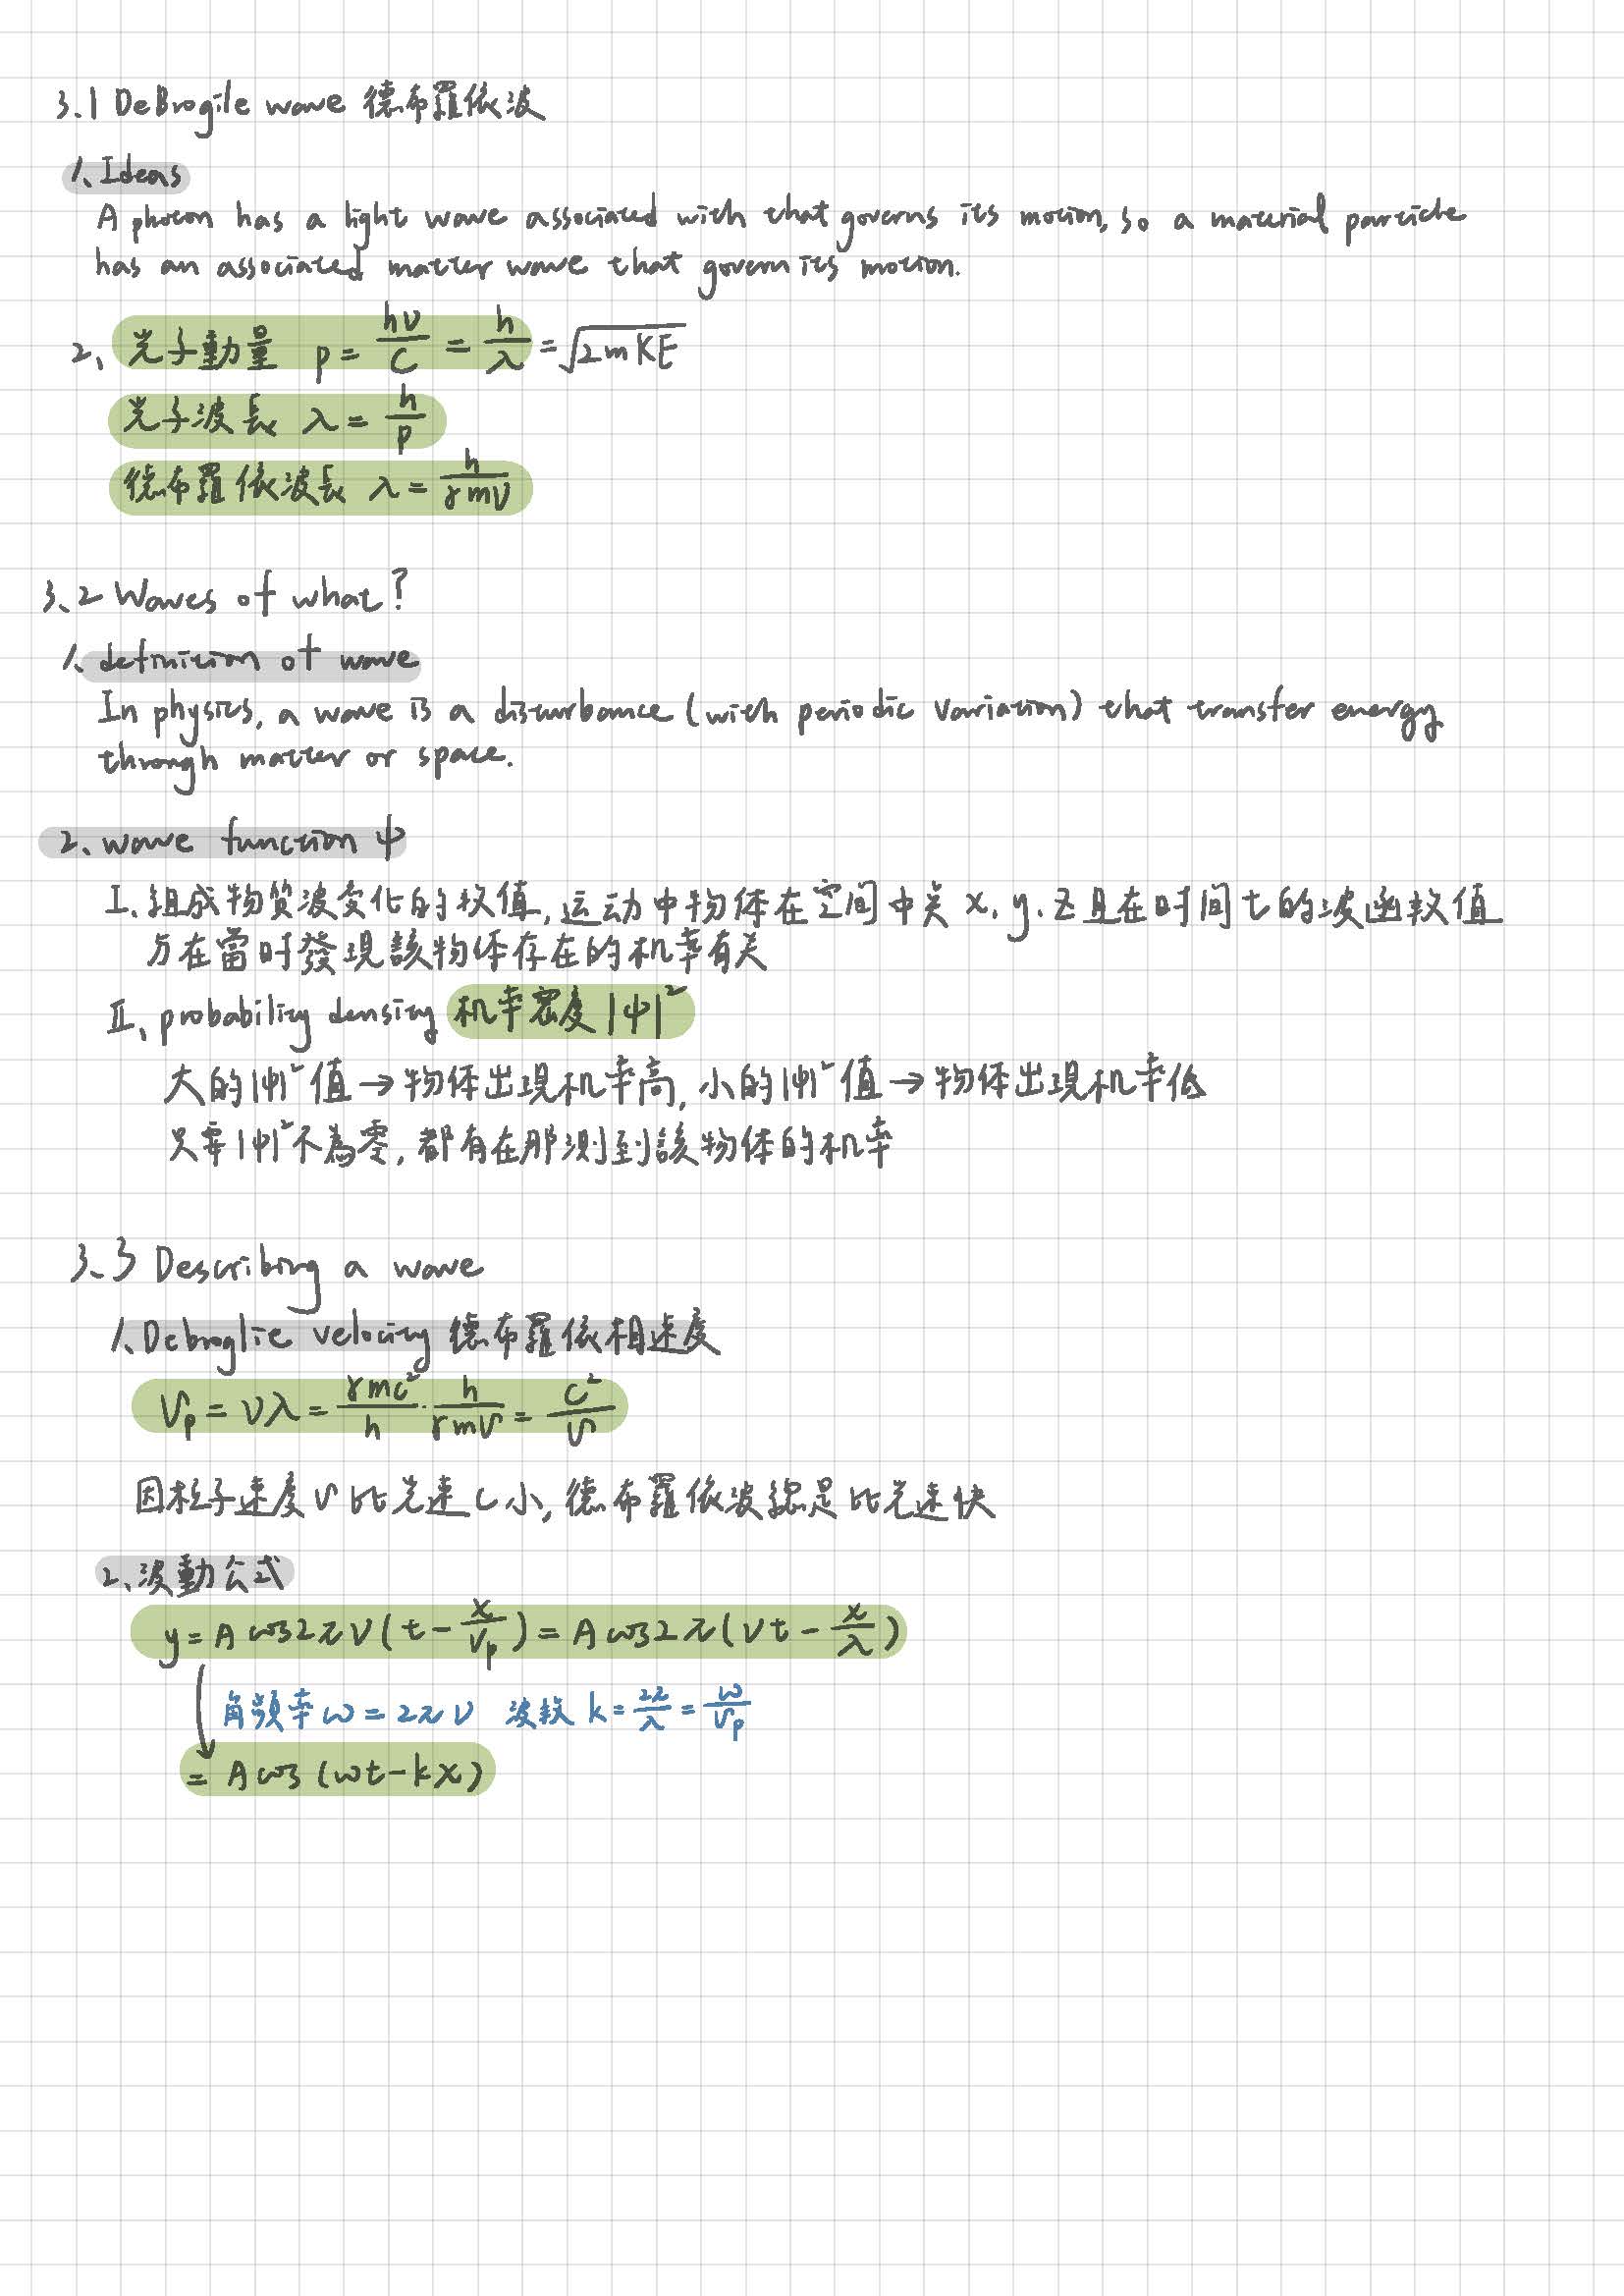 3.1 DeBrogile wave 德布羅依波
1、Ideas
A photon has a light wave associated with that governs its motion, so a material particle
has an associated matter wave that govern its motion.
2、光子動量 p = hν/c = h/λ = √2mKE
光子波長 λ = h/p
德布羅依波長 λ = h/γmv
3.2 Waves of what?
1、definition of wave
In physics, a wave is a disturbance (with periodic variation) that transfer energy
through matter or space.
2、wave function ψ
I、組成物質波变化的数值,运动中物体在空间中点 x、y、z且在时间t的波函数值
与在當时發現該物体存在的机率有关
II、probability density 机率密度 |ψ|²
大的|ψ|²值→物体出現机率高, 小的|ψ|²值→物体出現机率低
只要|ψ|²不為零, 都有在那測到該物体的机率
3.3 Describing a wave
1、Debroglie velocity 德布羅依相速度
Vp = νλ = γmc²/h · h/γmv = c²/v
因粒子速度v比光速c小, 德布羅依波總是比光速快
2、波動公式
y = A cos2πν(t - x/Vp) = A cos2π(νt - x/λ)
角頻率ω = 2πν 波数 k = 2π/λ = ω/Vp
= A cos (ωt - kx)